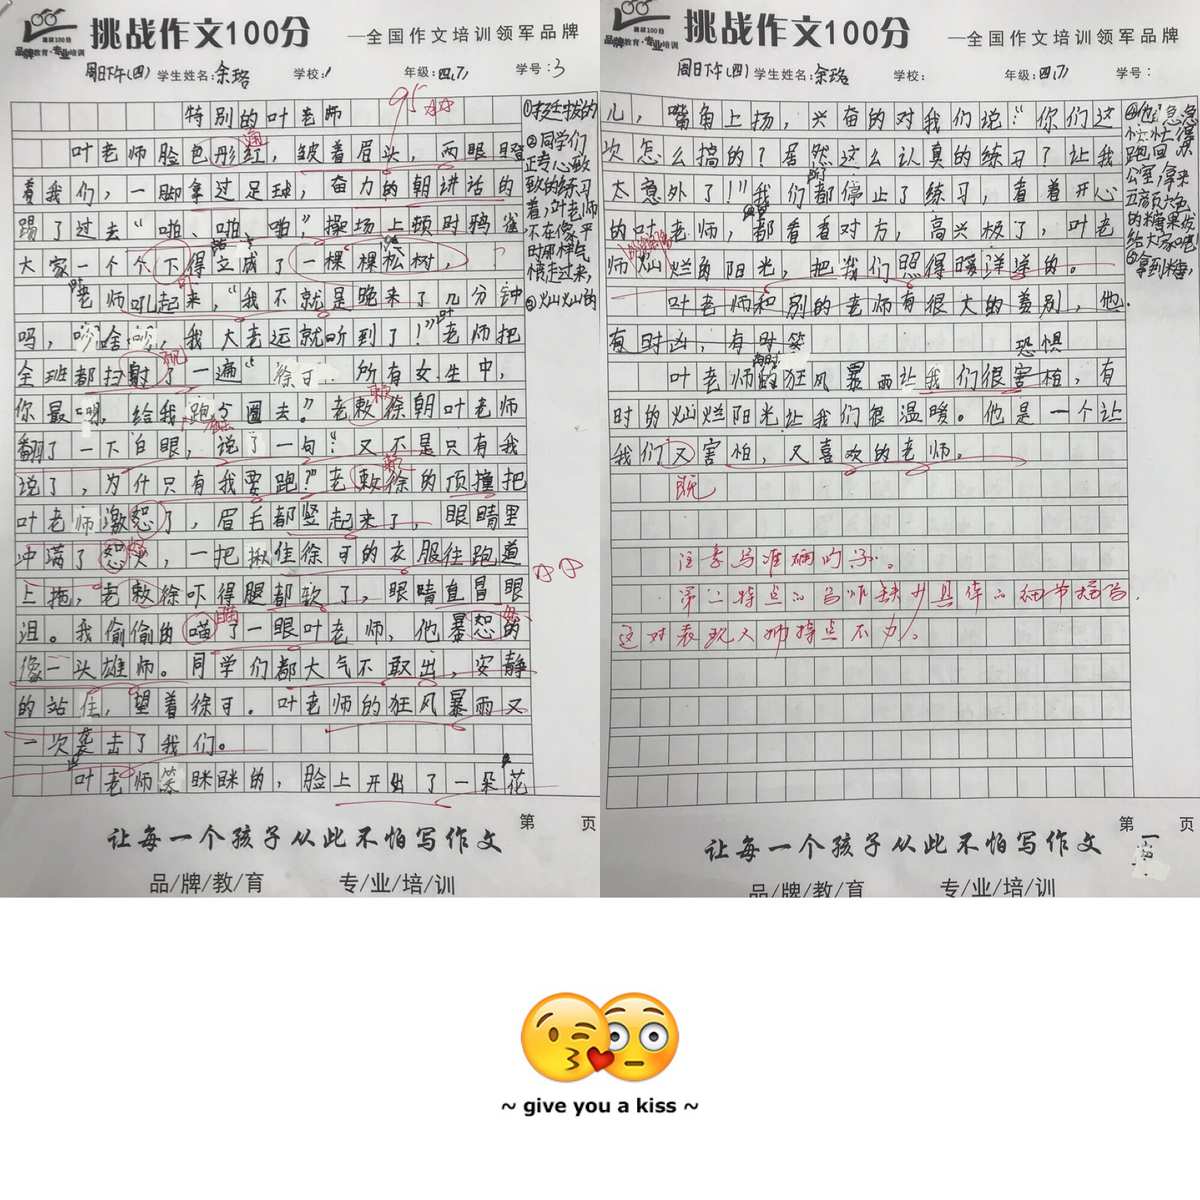 挑战作文100分
—全国作文培训领军品牌
品牌教育·专业培训
周日下午(四) 学生姓名:余珞 学校: 年级:四.7 学号:3
特别的叶老师
95
叶老师脸色彤红,皱着眉头,两眼瞪
着我们,一脚拿过足球,奋力的朝讲话的
踢了过去“啪、啪、啪”操场上顿时鸦雀
大家一个个下得立成了一棵棵松树,
老师吼起来,“我不就是晚来了几分钟
吗,啥,我大老远就听到了!”老师把
全班都扫射了一遍“徐可.所有女生中,
你最 给我跑5圈去?”老敕徐朝叶老师
翻了一下白眼,说了一句:“又不是只有我
说了,为什只有我要跑?”老敕徐的顶撞把
叶老师激怒了,眉毛都竖起来了,眼睛里
冲满了怒火,一把揪住徐可的衣服往跑道
上拖,老敕徐吓得腿都软了,眼睛直冒眼
泪。我偷偷的喵了一眼叶老师,他暴怒的
像一头雄师。同学们都大气不敢出,安静
的站住,望着徐可.叶老师的狂风暴雨又
一次袭击了我们。
叶老师笑眯眯的,脸上开出了一朵花
①挺拔的
②同学们
正专心致
致的练习
着,叶老师
不在像平
时那样气
愤走过来,
③灿灿的
第 页
让每一个孩子从此不怕写作文
品/牌/教/育 专/业/培/训
挑战作文100分
—全国作文培训领军品牌
品牌教育·专业培训
周日下午(四) 学生姓名:余珞 学校: 年级:四.7 学号:
儿,嘴角上扬,兴奋的对我们说:“你们这
次怎么搞的?居然这么认真的练习?让我
太意外了!”我们都停止了练习,看着开心
的叶老师,都看看对方,高兴极了,叶老
师灿烂的阳光,把我们照得暖洋洋的。
叶老师和别的老师有很大的差别,他
有时凶,有时笑
恐惧
叶老师的狂风暴雨让我们很害怕,有
时的灿烂阳光让我们很温暖。他是一个让
我们又害怕,又喜欢的老师。
既
④他急急
忙忙得
跑回办
公室,拿来
五颜六色
的糖果发
给大家吃
⑤拿到糖,
注意写准确的字.
第二特点的写作缺少具体的细节描写
这对表现人物特点不力。
第一页
让每一个孩子从此不怕写作文
品/牌/教/育 专/业/培/训
~ give you a kiss ~